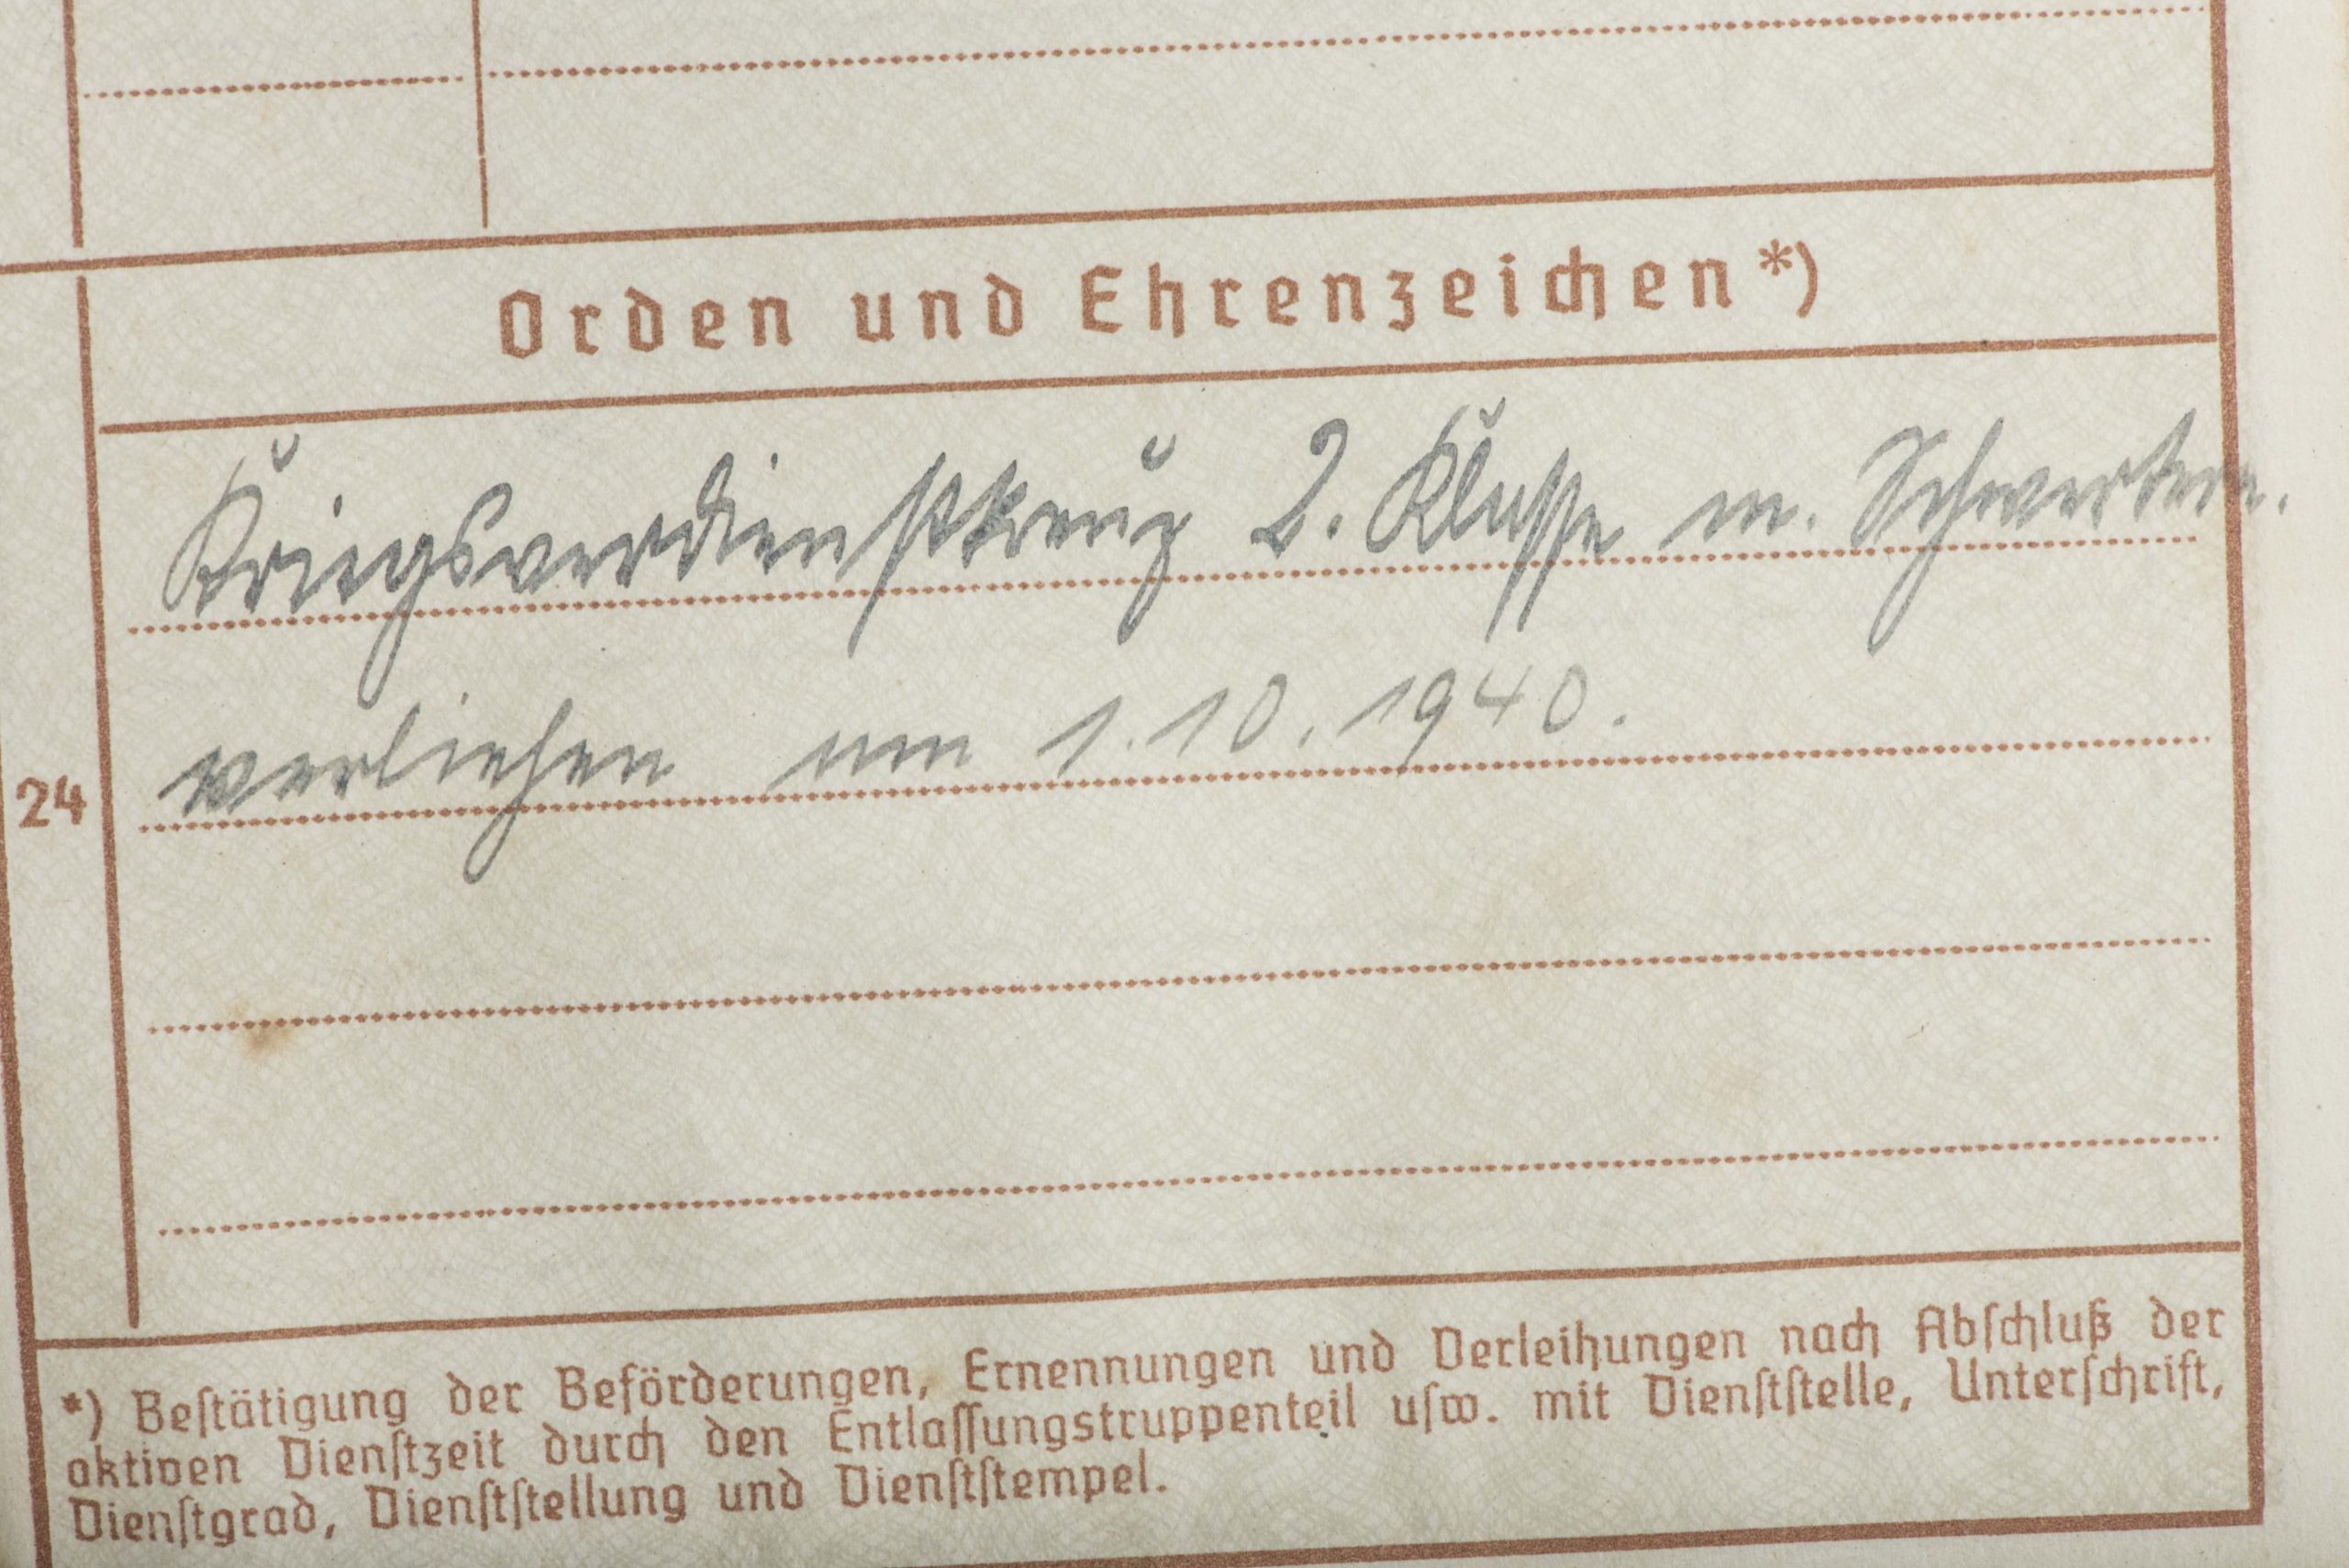 Orden und Ehrenzeichen*)
Kriegsverdienstkreuz 2. Klasse m. Schwertern.
verliehen am 1.10.1940.
24
*) Beſtätigung der Beförderungen, Ernennungen und Verleihungen nach Abſchluß der
aktiven Dienſtzeit durch den Entlaſſungstruppenteil uſw. mit Dienſtſtelle, Unterſchrift,
Dienſtgrad, Dienſtſtellung und Dienſtſtempel.